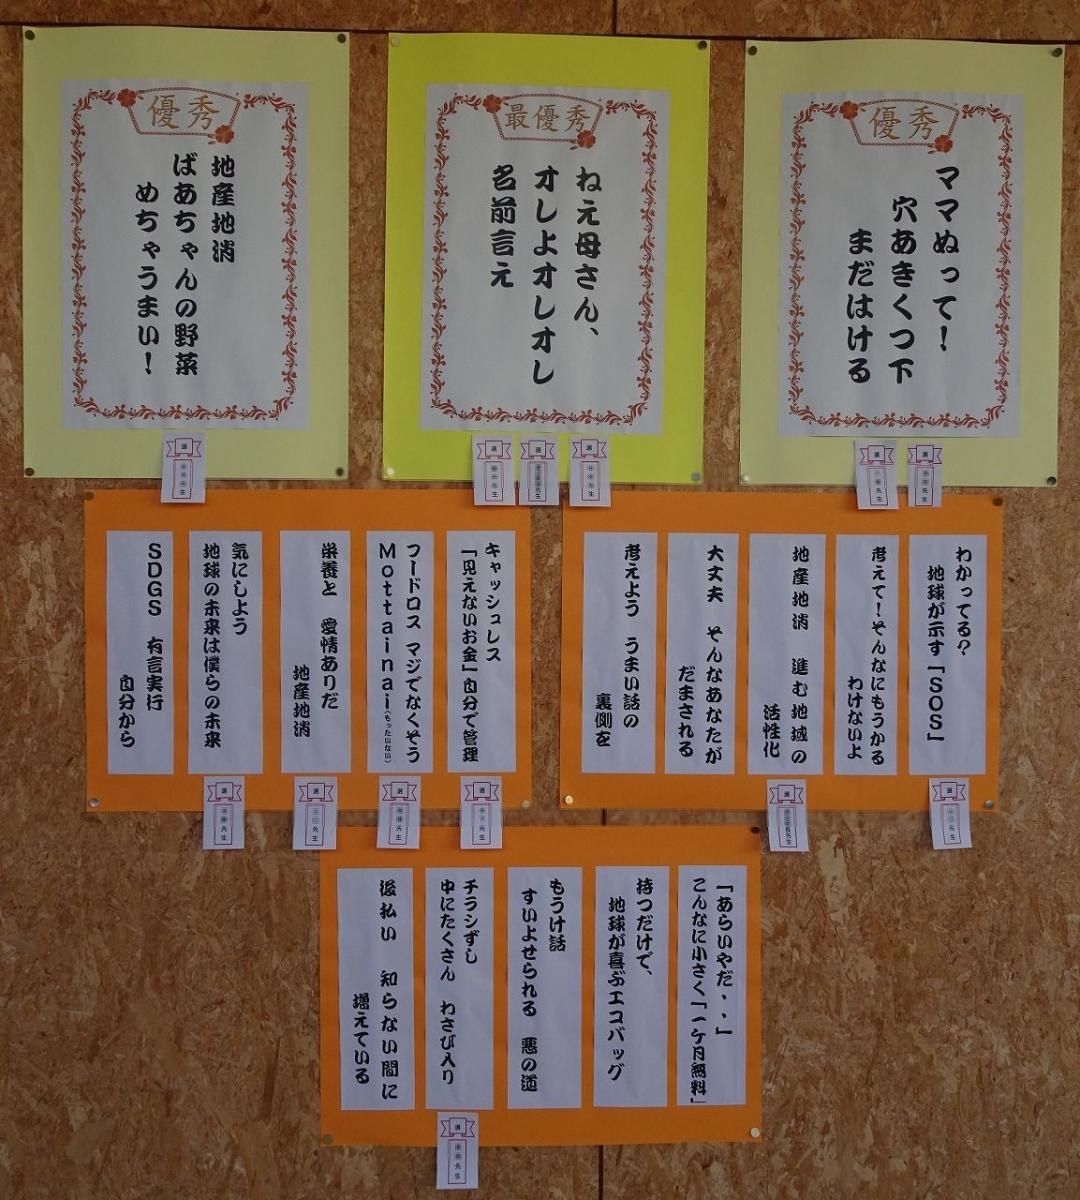 優秀
ママぬって！
穴あきくつ下
まだはける
最優秀
ねえ母さん、
オレよオレオレ
名前言え
優秀
地産地消
ばあちゃんの野菜
めちゃうまい！
選
先生
選
先生
選
選
先生
選
先生
選
先生
わかってる？
地球が示す「ＳＯＳ」
考えて！そんなにもうかる
わけないよ
地産地消　進む地域の
活性化
大丈夫　そんなあなたが
だまされる
考えよう　うまい話の
裏側を
キャッシュレス
「見えないお金」自分で管理
フードロス　マジでなくそう
Ｍｏｔｔａｉｎａｉ（もったいない）
栄養と　愛情ありだ
地産地消
気にしよう
地球の未来は僕らの未来
ＳＤＧＳ　有言実行
自分から
選
先生
選
先生
選
先生
選
先生
選
先生
選
先生
「あらいやだ・・」
こんなに小さく「一ケ月無料」
持つだけで、
地球が喜ぶエコバッグ
もうけ話
すいよせられる　悪の道
チラシずし
中にたくさん　わさび入り
後払い　知らない間に
増えている
選
先生